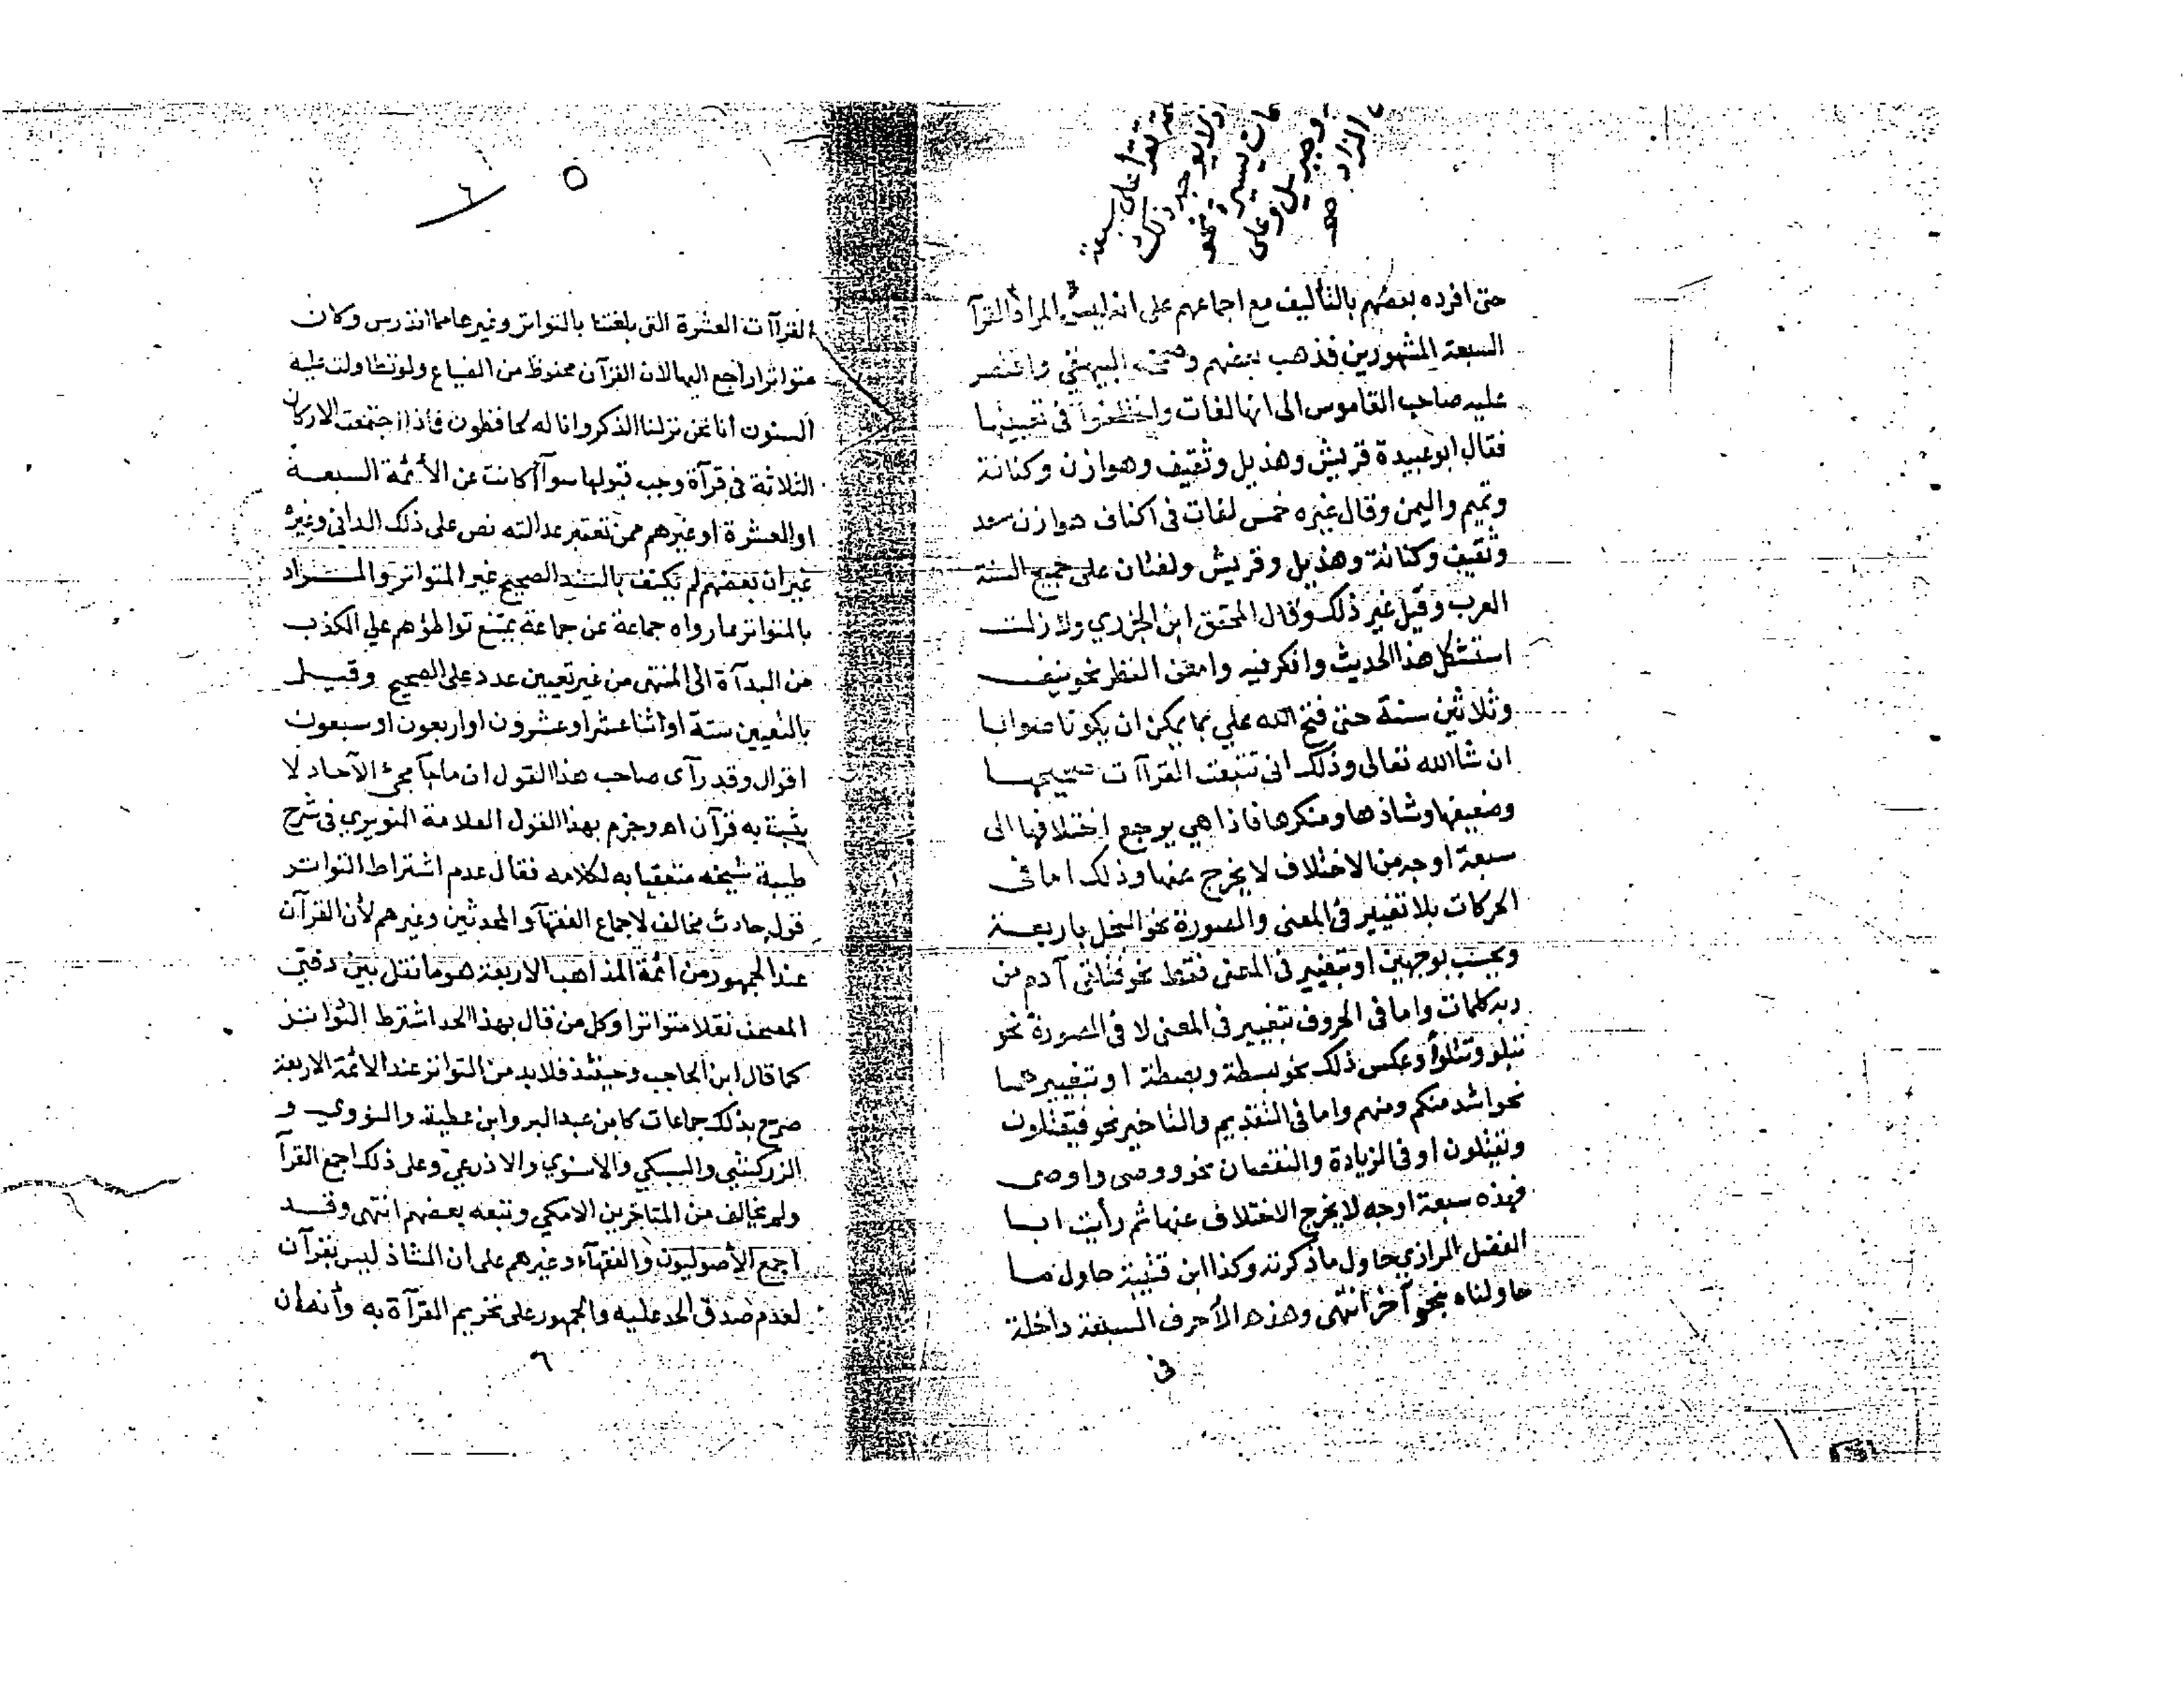 تقرأ على سبعة
ولا يوجد ذلك
يسيرة نحو
وجبريل وعلى
المراد صح
حتى افرده بعضهم بالتأليف مع اجماعهم على انه ليس المراد القرآ
السبعة المشهورين فذهب بعضهم وصححه البيهقي واقتصر
عليه صاحب القاموس الى انها لغات واختلفوا في تعيينها
فقال ابو عبيدة قريش وهذيل وثقيف وهوازن وكنانة
وتميم واليمن وقال غيره خمس لغات في اكناف هوازن سعد
وثقيف وكنانة وهذيل وقريش ولغتان على جميع السنة
العرب وقيل غير ذلك وقال المحقق ابن الجزري ولا زلت
استشكل هذا الحديث وافكر فيه وامعن النظر نحو نيف
وثلاثين سنة حتى فتح الله علي بما يمكن ان يكون صوابا
ان شا الله تعالى وذلك انى تتبعت القرآات صحيحها
وضعيفها وشاذها ومنكرها فاذا هي يرجع اختلافها الى
سبعة اوجه من الاختلاف لا يخرج عنها وذلك اما في
الحركات بلا تغيير في المعنى والصورة نحو البخل باربعة
ويحسب بوجهين او بتغيير في المعنى فقط نحو فتلقى آدم من
ربه كلمات واما في الحروف بتغيير في المعنى لا في الصورة نحو
تبلو وتتلوا وعكس ذلك نحو بسطة وبصطة او بتغييرهما
نحو اشد منكم ومنهم واما في التقديم والتاخير نحو فيقتلون
ويقتلون او في الزيادة والنقصان نحو ووصى واوصى
فهذه سبعة اوجه لا يخرج الاختلاف عنها ثم رأيت ابا
الفضل الرازي حاول ما ذكرته وكذا ابن قتيبة حاول ما
حاولناه بنحو آخر انتهى وهذه الأحرف السبعة داخلة
في
٥
٦
القرآات العشرة التى بلغتنا بالتواتر وغيرها مما اندرس وكان
متواترا راجع اليها لان القرآن محفوظ من الضياع ولو تطاولت عليه
السنون انا نحن نزلنا الذكر وانا له لحافظون فاذا اجتمعت الاركان
الثلاثة في قرآة وجب قبولها سوآ كانت عن الأئمة السبعة
او العشرة او غيرهم ممن تعتبر عدالته نص على ذلك الداني وغيره
غير ان بعضهم لم يكتف بالسند الصحيح غير المتواتر والمراد
بالمتواتر ما رواه جماعة عن جماعة يمتنع تواطؤهم علي الكذب
من البدآة الى المنتهى من غير تعيين عدد على الصحيح وقيل
بالتعيين ستة او اثنا عشر او عشرون او اربعون او سبعون
اقوال وقد رآى صاحب هذا القول ان ما جآ مجئ الآحاد لا
يثبت به قرآن اه وجزم بهذا القول العلامة النويري في شرح
طيبة شيخه متعقبا به لكلامه فقال عدم اشتراط التواتر
قول حادث مخالف لاجماع الفقهآ والمحدثين وغيرهم لأن القرآن
عند الجمهور من ائمة المذاهب الاربعة هو ما نقل بين دفتي
المصحف نقلا متواترا وكل من قال بهذا الحد اشترط التواتر
كما قال ابن الحاجب وحينئذ فلا بد من التواتر عند الائمة الاربعة
صرح بذلك جماعات كابن عبد البر وابن عطية والنووي و
الزركشي والسبكي والاسنوي والاذرعي وعلى ذلك اجمع القرآ
ولم يخالف من المتاخرين الا مكي وتبعه بعضهم انتهى وقد
اجمع الأصوليون والفقهآء وغيرهم على ان الشاذ ليس بقرآن
لعدم صدق الحد عليه والجمهور على تحريم القرآة به وأنه ان
٦